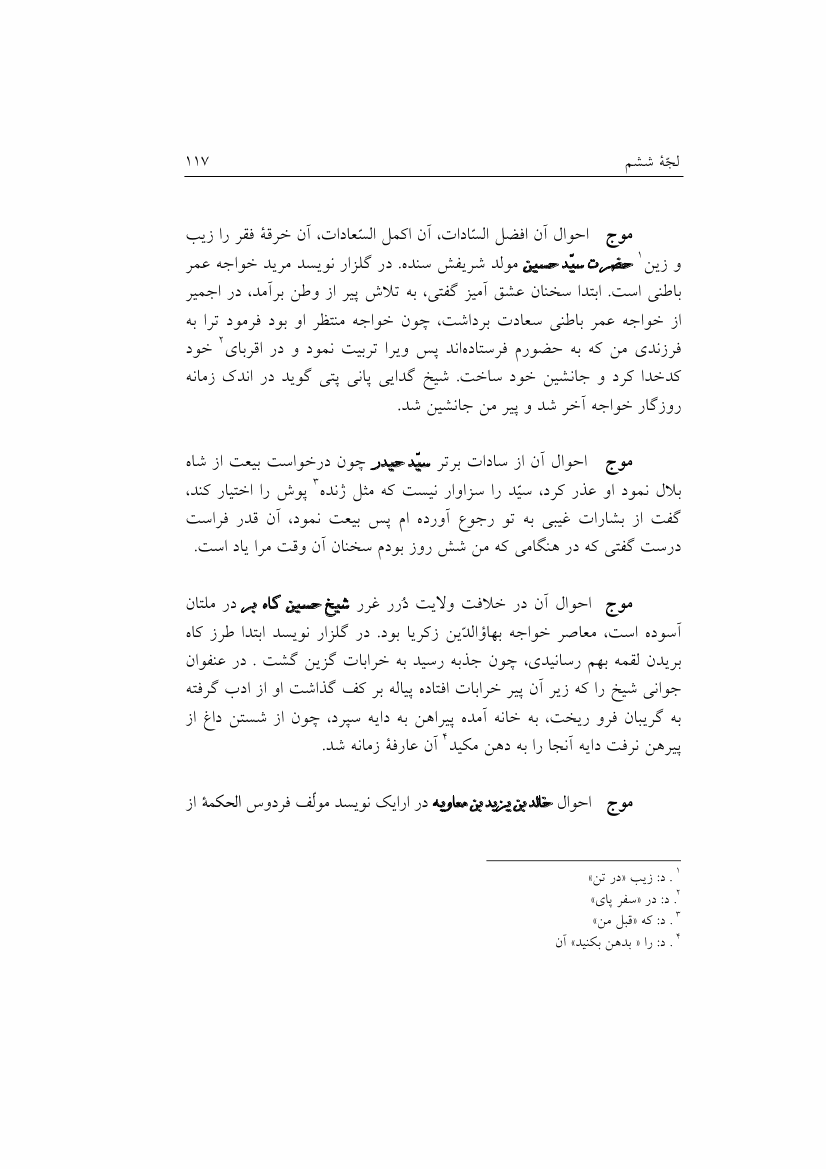 لجّهٔ ششم ۱۱۷
موج احوال آن افضل السّادات، آن اکمل السّعادات، آن خرقهٔ فقر را زیب
و زین۱ حضرت سیّد حسین مولد شریفش سنده. در گلزار نویسد مرید خواجه عمر
باطنی است. ابتدا سخنان عشق آمیز گفتی، به تلاش پیر از وطن برآمد، در اجمیر
از خواجه عمر باطنی سعادت برداشت، چون خواجه منتظر او بود فرمود ترا به
فرزندی من که به حضورم فرستاده‌اند پس ویرا تربیت نمود و در اقربای۲ خود
کدخدا کرد و جانشین خود ساخت. شیخ گدایی پانی پتی گوید در اندک زمانه
روزگار خواجه آخر شد و پیر من جانشین شد.
موج احوال آن از سادات برتر سیّد حیدر چون درخواست بیعت از شاه
بلال نمود او عذر کرد، سیّد را سزاوار نیست که مثل ژنده۳ پوش را اختیار کند،
گفت از بشارات غیبی به تو رجوع آورده ام پس بیعت نمود، آن قدر فراست
درست گفتی که در هنگامی که من شش روز بودم سخنان آن وقت مرا یاد است.
موج احوال آن در خلافت ولایت دُرر غرر شیخ حسین کاه بر در ملتان
آسوده است، معاصر خواجه بهاؤالدّین زکریا بود. در گلزار نویسد ابتدا طرز کاه
بریدن لقمه بهم رسانیدی، چون جذبه رسید به خرابات گزین گشت . در عنفوان
جوانی شیخ را که زیر آن پیر خرابات افتاده پیاله بر کف گذاشت او از ادب گرفته
به گریبان فرو ریخت، به خانه آمده پیراهن به دایه سپرد، چون از شستن داغ از
پیرهن نرفت دایه آنجا را به دهن مکید۴ آن عارفهٔ زمانه شد.
موج احوال خالد بن یزید بن معاویه در ارایک نویسد مولّف فردوس الحکمهٔ از
۱ . د: زیب «در تن»
۲. د: در «سفر پای»
۳ . د: که «قبل من»
۴ . د: را « بدهن بکنید» آن